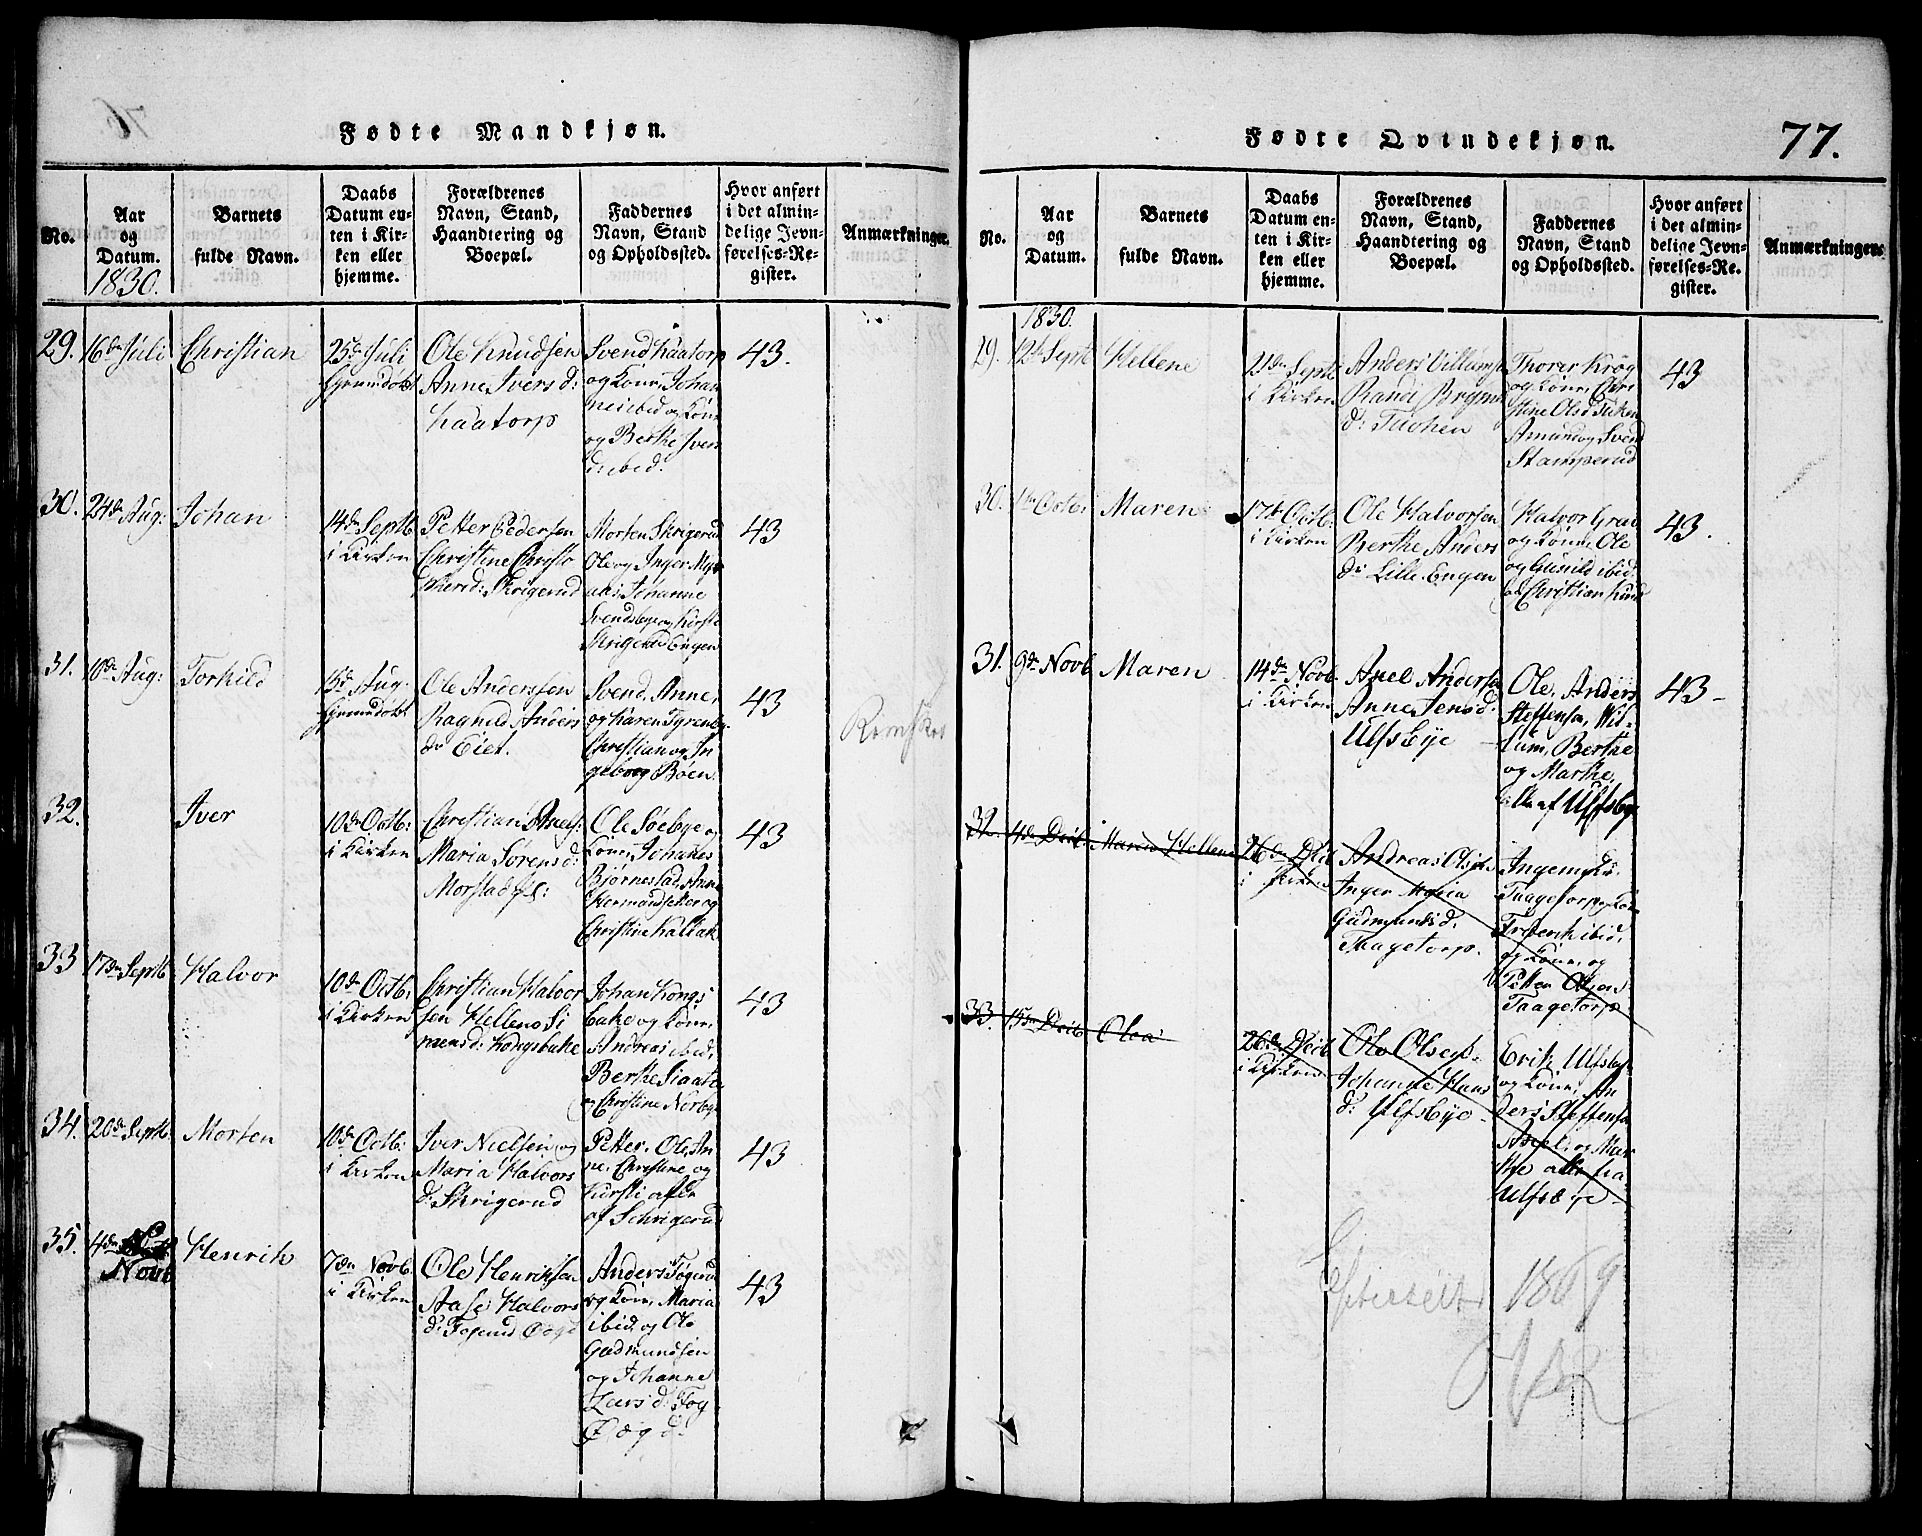 76
Fødte Mandkjøn.
No.
Aar
og
Datum.
1830.
Barnets
fulde Navn.
Daabs
Datum en-
ten i Kir-
ken eller
hjemme.
Forældrenes
Navn, Stand,
Haandtering og
Boepæl.
Faddernes
Navn, Stand
og Opholdssted.
Hvor anført
i det almin-
delige Jevn-
førelses-Re-
gister.
Anmærkninger.
29. 16de Juli
Christian
25de Juli
hjemmedøbt
Ole Knudsen
Anne Ivers d:
Kaatorp
Svend Kaatorp
og Kone, Johan
nes ibid og Kone
og Berthe Ivers
d: ibid.
43.
30. 24de Aug:
Johan
14de Septb.
i Kirken
Petter Pedersen
Christine Christo
phers d: Skrigerud
Morten Skrigerud
Ole og Inger
Johanne
Svendsbye og Kirsti
Skrigerud Engen
43
31. 10de Aug:
Torkild
15d Aug:
hjemmedøbt
Ole Anderssen
Ragnild Anders
d: Eiet.
Svend, Anne,
og Karen
Christian og In
geborg Böen.
43
32.
Iver
10de Octb:
i Kirken
Christian Axels:
Maria Sørens d:
Morstad
Ole Söebye og
Kone, Johannes
Bjørnestad, Anne
Hermandsetter og
Christine Kallak
43
33 17de Septb.
Halvor
10de Octb:
i Kirken
Christian Halvor
sen Hellene Si
mens d: Kongsbake
Johan Kongs
bake og Kone,
Andreas ibid,
Berthe
og Christine Norbye
43
34. 20de Septb.
Morten
10de Octb:
i Kirken
Iver Nielsen og
Maria Halvors
d: Skrigerud
Petter, Ole, An
ne, Christine og
Kirsti alle
af Schrigerud
43
35. 4de
Novb
Henrik
7de Novb.
i Kirken
Ole Henriksen
Aase Halvors
d:
Anders
og Kone, Maria
ibid. og Ole
Gudmundsen
og Johanne
Lars d:
43
Fødte Qvindekjøn.
77.
No.
Aar
og
Datum.
Barnets
fulde Navn.
Daabs
Datum en-
ten i Kir-
ken eller
hjemme.
Forældrenes
Navn, Stand,
Haandtering og
Boepæl.
Faddernes
Navn, Stand
og Opholdssted.
Hvor anført
i det almin-
delige Jevn-
førelses-Re-
gister.
Anmærkninger.
1830.
29. 12te Septb
Hellene
21de Septb
i Kirken
Anders Villumsen
Randi
d:
Thorer Krog
og Kone, Chri
stine Olsd
Amund og Svend
Stamperud
43
30. 1ste Octb:
Maren
17de Octb:
i Kirken
Ole Halvorsen
Berthe Anders
d: Lille Engen
Halvor
og Kone, Ole
og Gunild ibid.
og Christian
43.
31. 9de Novb
Maren
14de Novb.
i Kirken
Axel Andersen
Anne Jens d:
Ulfsbye
Ole, Anders
Steffensen, Wil-
lum, Berthe
og Marthe,
alle af Ulfsbye
43
32. 4de Decb.
Maren Hellene
26de Decb
i Kirken
Andreas Olsen
Inger Maria
Gudmunds d.
Taagetorp.
Taagetorp og Kone
Frederik ibid.
og Kone, og
Petter Olsen
Taagetorp
33. 15de Decb.
Olea
26de Decb
i Kirken
Ole Olsen
Johanne Hans
d: Ulfsbye
Erik Ulfsbye
og Kone, An
ders Steffensen
Axel, og Mar
the alle fra
Ulfsbye
Efterseet 1869